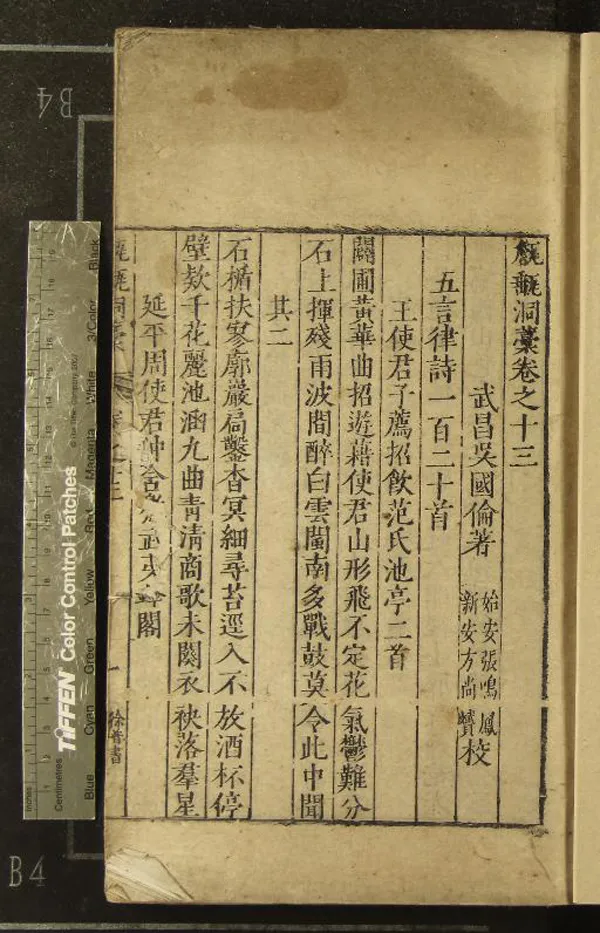 甔甀洞藁卷之十三
武昌吳國倫著 始安張鳴鳳 新安方尚贇 校
五言律詩一百二十首
王使君子薦招飲范氏池亭二首
闢圃黃華曲招遊藉使君山形飛不定花氣鬱難分
石上揮殘雨波間醉白雲閩南多戰鼓莫令此中聞
其二
石楯扶寥廓巖扃鑿杳冥細尋苔逕入不放酒杯停
壁欹千花麗池涵九曲青清商歌未闋衣袂落羣星
延平周使君 武夷 閣
洞藁 卷之十三 一 徐普書
B4
B4
Inches
Centimetres
TIFFEN Color Control Patches
© The Tiffen Company, 2007
Blue
Cyan
Green
Yellow
Red
Magenta
White
3/Color
Black